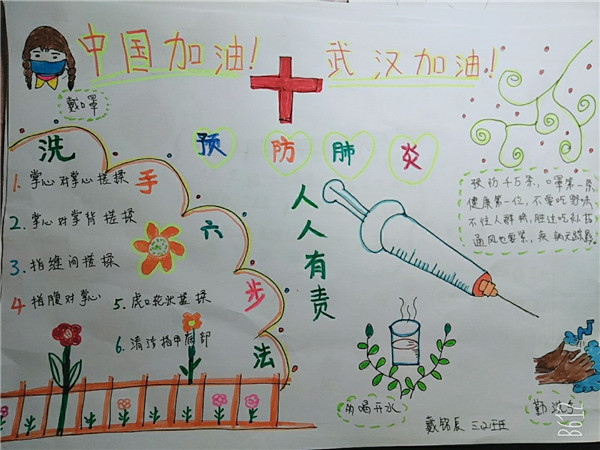 中国加油!
武汉加油!
戴口罩
预防肺炎
人人有责
洗手六步法
1. 掌心对掌心搓揉
2. 掌心对掌背搓揉
3. 指缝间搓揉
4 指腹对掌心
5. 虎口
6. 清洁指甲
预防千万条，口罩第一条
健康第一位，不要吃野味
不往人群
通风也要紧，
喝开水
勤洗手
三(2)班
B612